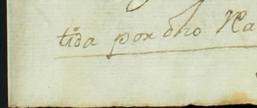 tida por dho Na